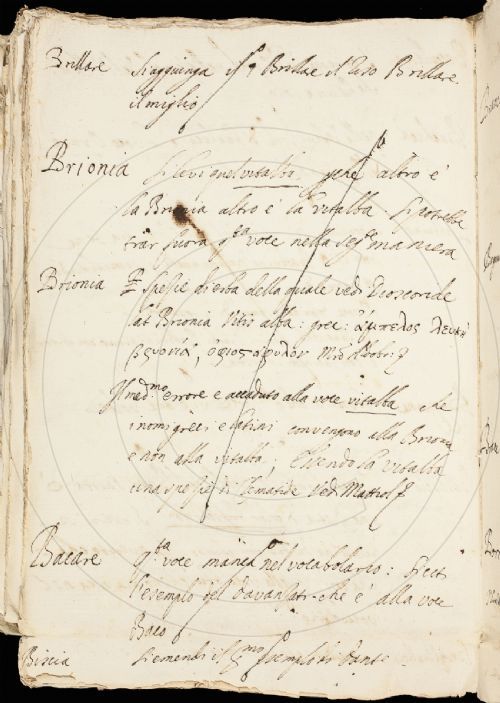 Brillare Si aggiunga il § Brillare il riso Brillare
il miglio
Brionia si levi quel vitalba, perché altro è
la Brionia altro è la vitalba. Si potrebbe
trar fuora q.ta voce nella seg.te maniera
Brionia Spezie d'erba della quale vedi Dioscoride
lat Brionia Vitis alba: grec: ἄμπελος λευκή
βρυονία,
Il med.mo errore è accaduto alla voce vitalba che
i nomi greci e latini convengono alla Brionia
e non alla vitalba; essendo la vitalba
una spezie di Clematide Vedi Mattiol
Bacare q.ta voce manca nel vocabolario:
l'esempio del Davanzati che è alla voce
Baco
Biscia Si emendi il esempio di Dante